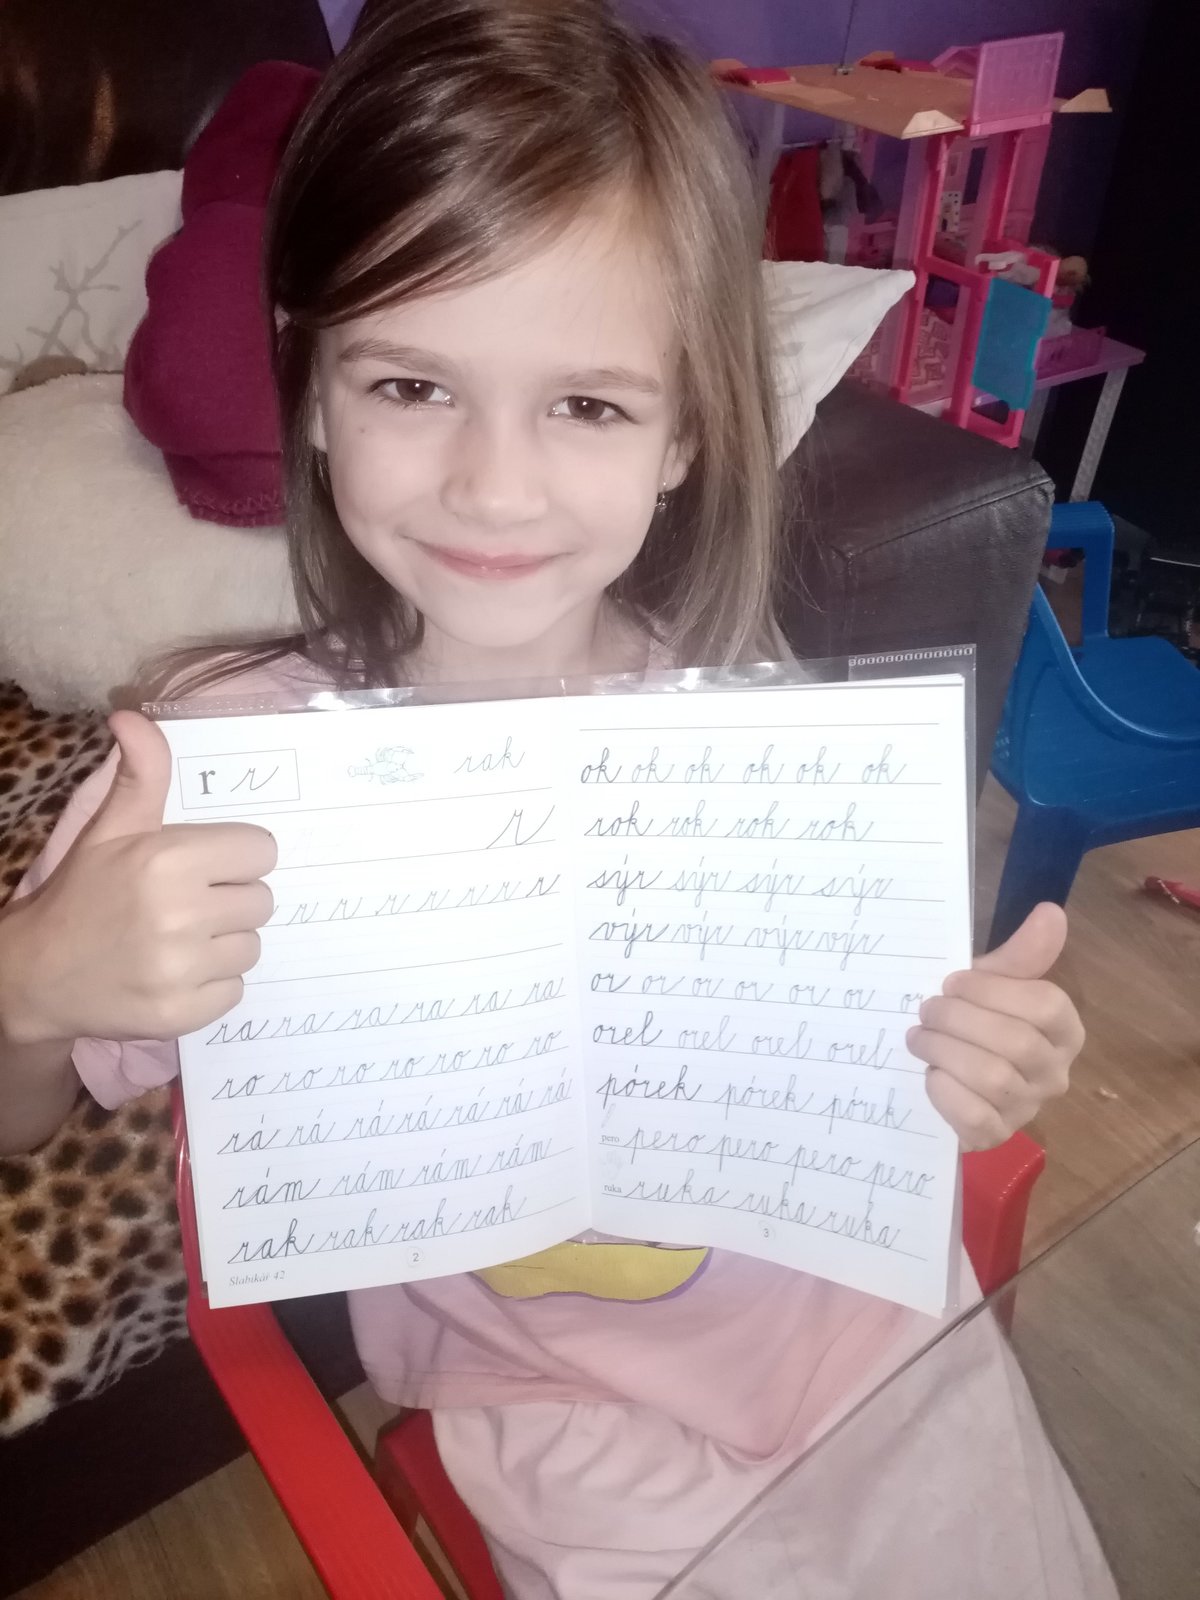 r r rak
r
r r r r r r r
ra ra ra ra ra ra
ro ro ro ro ro ro
rá rá rá rá rá rá rá
rám rám rám rám
rak rak rak rak
Slabikář 42
2
ok ok ok ok ok ok
rok rok rok rok
sýr sýr sýr sýr
výr výr výr výr
or or or or or or or
orel orel orel orel
pórek pórek pórek
pero pero pero pero pero
ruka ruka ruka ruka
3